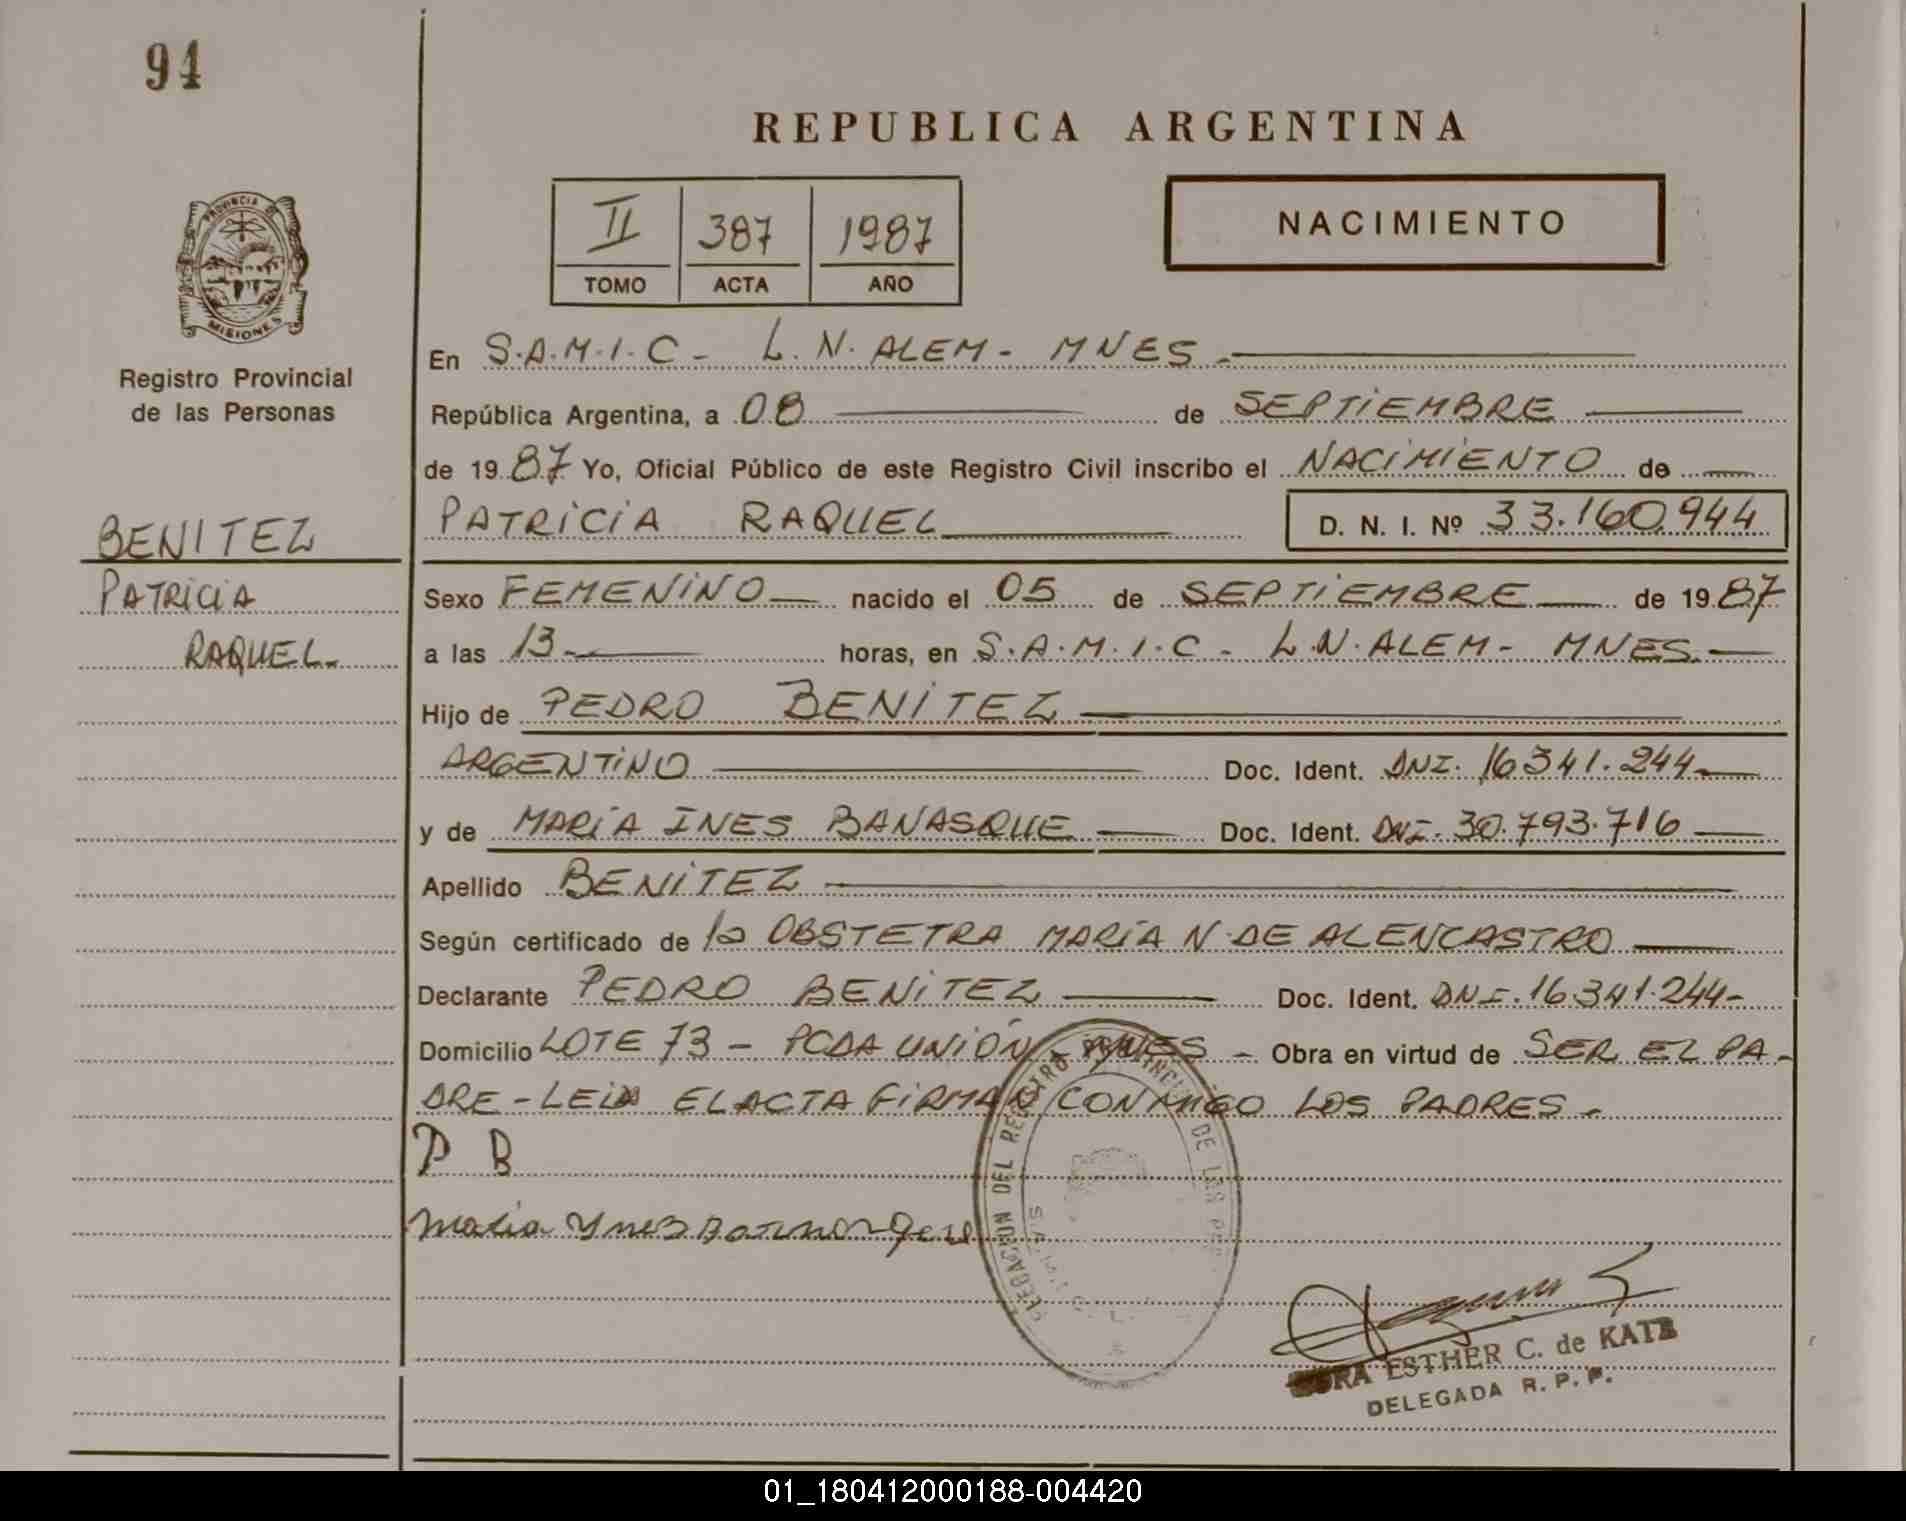 94
REPUBLICA ARGENTINA
PROVINCIA DE
MISIONES
Registro Provincial
de las Personas
II 387 1987
TOMO ACTA AÑO
NACIMIENTO
En S.A.M.I.C - L.N. ALEM - MNES -
República Argentina, a 08 de SEPTiEMBRE
de 1987 Yo, Oficial Público de este Registro Civil inscribo el NACiMiENTO de
PATRiCiA RAQUEL D. N. I. Nº 33.160.944
BENITEZ
PATRiCiA
RAQUEL.
Sexo FEMENiNO nacido el 05 de SEPTiEMBRE de 1987
a las 13 - horas, en S.A.M.I.C - L.N. ALEM - MNES.
Hijo de PEDRO BENiTEZ
ARGENTiNO Doc. Ident. DNI. 16341.244
y de MARiA INES BANASQUE Doc. Ident. DNI. 30.793.716
Apellido BENiTEZ
Según certificado de la OBSTETRA MARiA N. DE ALENCASTRO
Declarante PEDRO BENiTEZ Doc. Ident. DNI. 16.341.244-
Domicilio LOTE 73 - PCDA UNiÓN - MNES - Obra en virtud de SER EL PA-
DRE - LEiDA EL ACTA FiRMAN CONMiGO LOS PADRES -
P B
Maria Ynes
DELEGACION DEL REGISTRO PROVINCIAL DE LAS
ESTHER C. de KATZ
DELEGADA R. P. P.
01_180412000188-004420